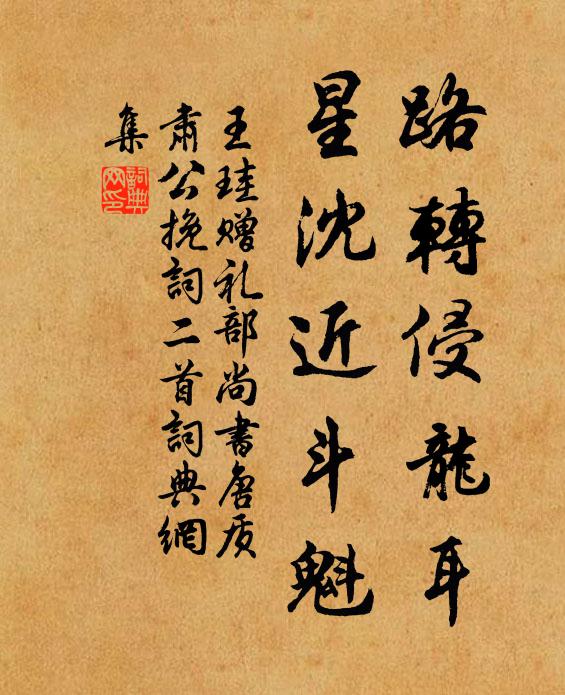 路轉侵龍耳
星沈近斗魁
王珪赠礼部尚書唐质
肅公挽詞二首詞典網
集
詞典網印